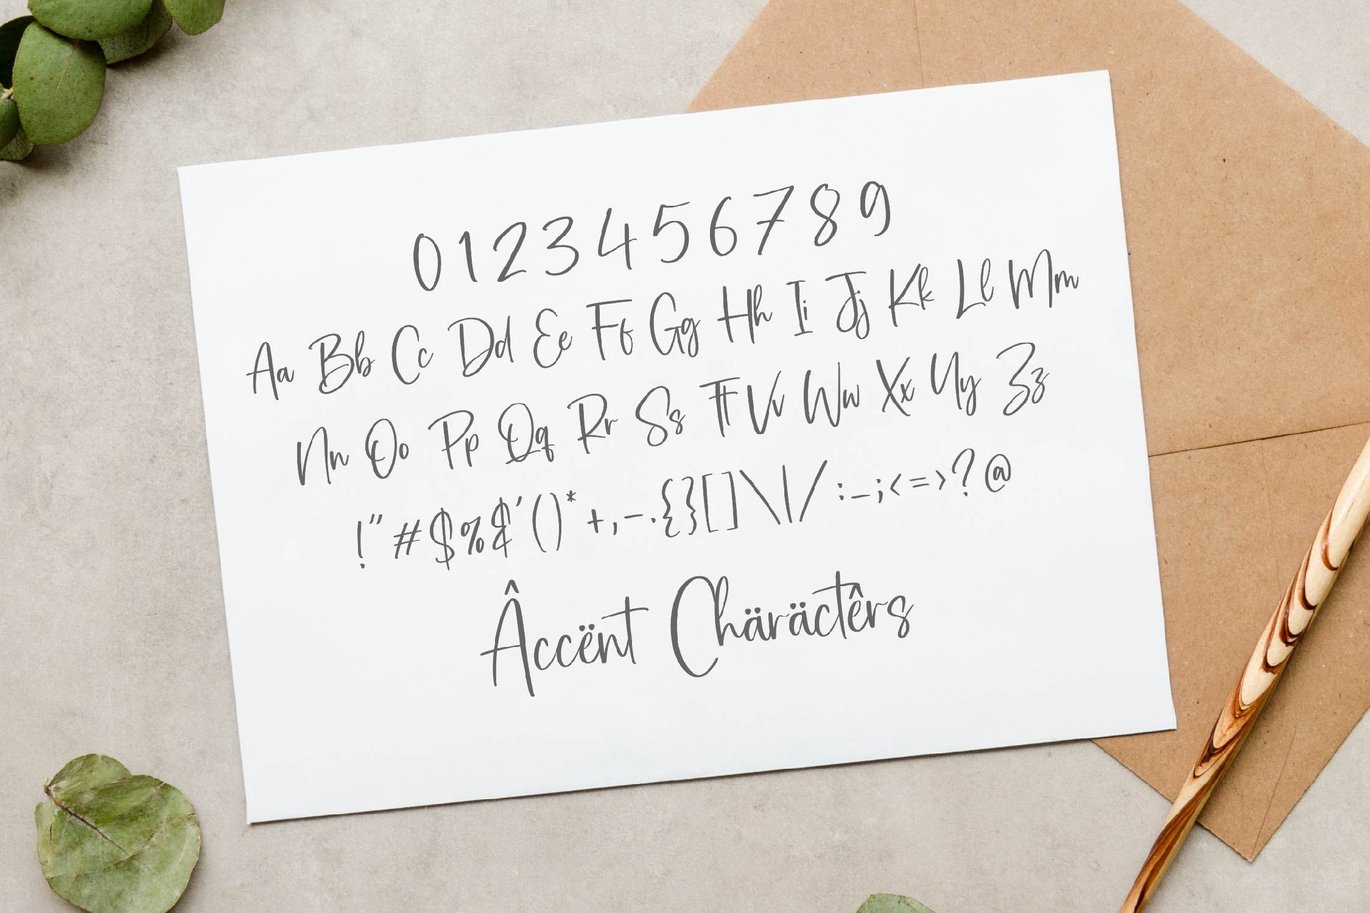 0 1 2 3 4 5 6 7 8 9
Aa Bb Cc Dd Ee Ff Gg Hh Ii Jj Kk Ll Mm
Nn Oo Pp Qq Rr Ss Tt Vv Ww Xx Yy Zz
!"#$%&'()*+,-.{}[]\|/:_;<=>?@
Âccënt Chäräctêrs